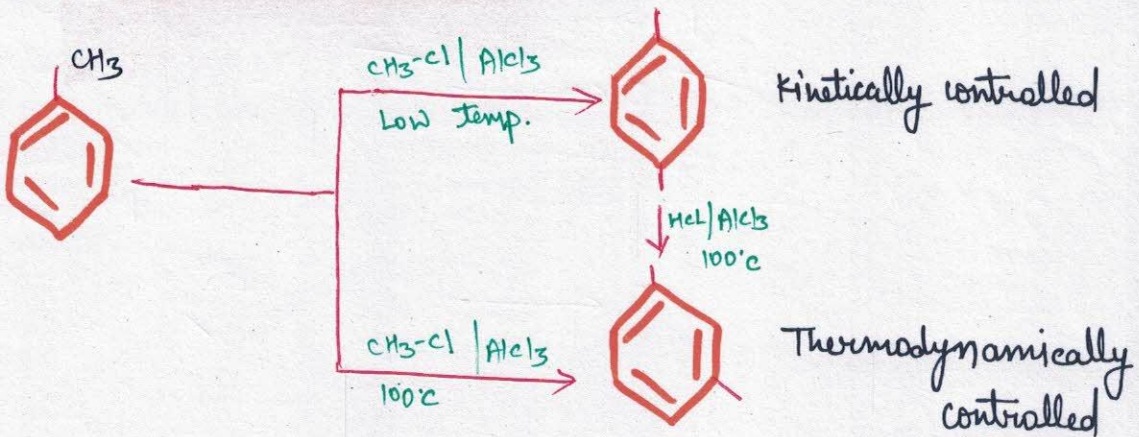 CH3
CH3-Cl | AlCl3
Low temp.
Kinetically controlled
HCL/AlCl3
100°C
CH3-Cl | AlCl3
100°C
Thermodynamically
controlled